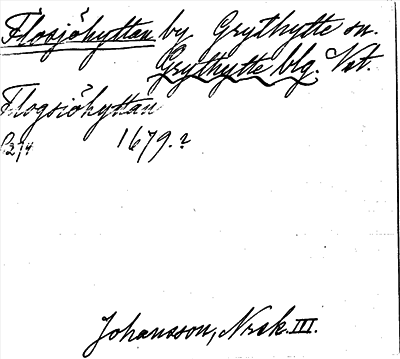 Flosjöhyttan by Grythytte sn.
Grythytte blg. Vst.
Flogsiöhyttan
1679.?
Johansson, Nrsk. III.